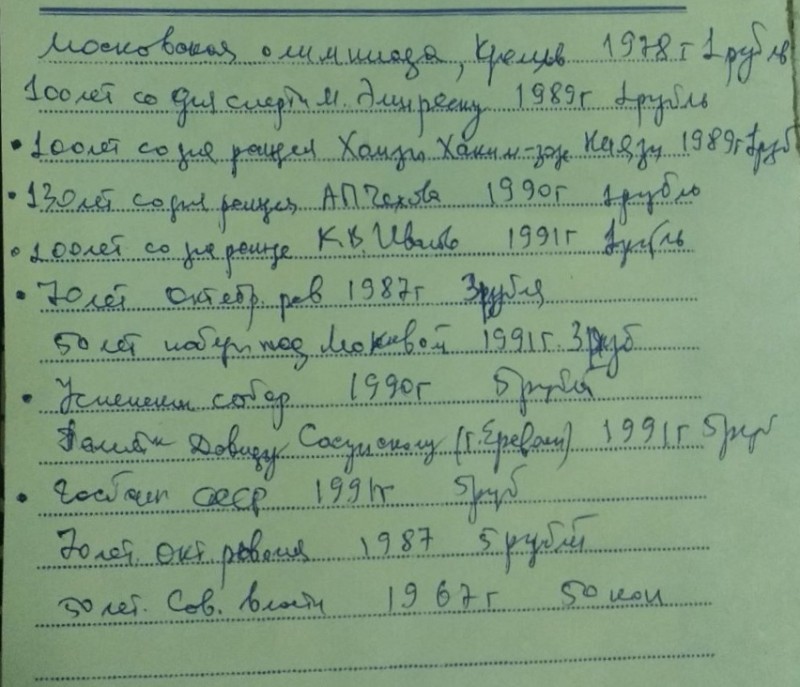 Московская олимпиада, Кремль 1978 г 1 рубль
100 лет со дня смерти М. Эминеску 1989г 1 рубль
• 100 лет со дня рожден Хамзы Хаким-заде Ниязи 1989г 1руб
• 130 лет со дня рожден А.П.Чехова 1990г 1рубль
• 100 лет со дня рожде К.В. Иванов 1991г 1рубль
• 70 лет октябр. рев 1987г 3рубля
50 лет победы под Москвой 1991г. 3руб
• Успенский собор 1990г 5рублей
Памятн Давиду Сасунскому (г. Ереван) 1991г 5руб
• Госбанк СССР 1991г 5руб
70 лет. окт. революция 1987 5 рублей
50 лет. Сов. власти 1967г 50 коп